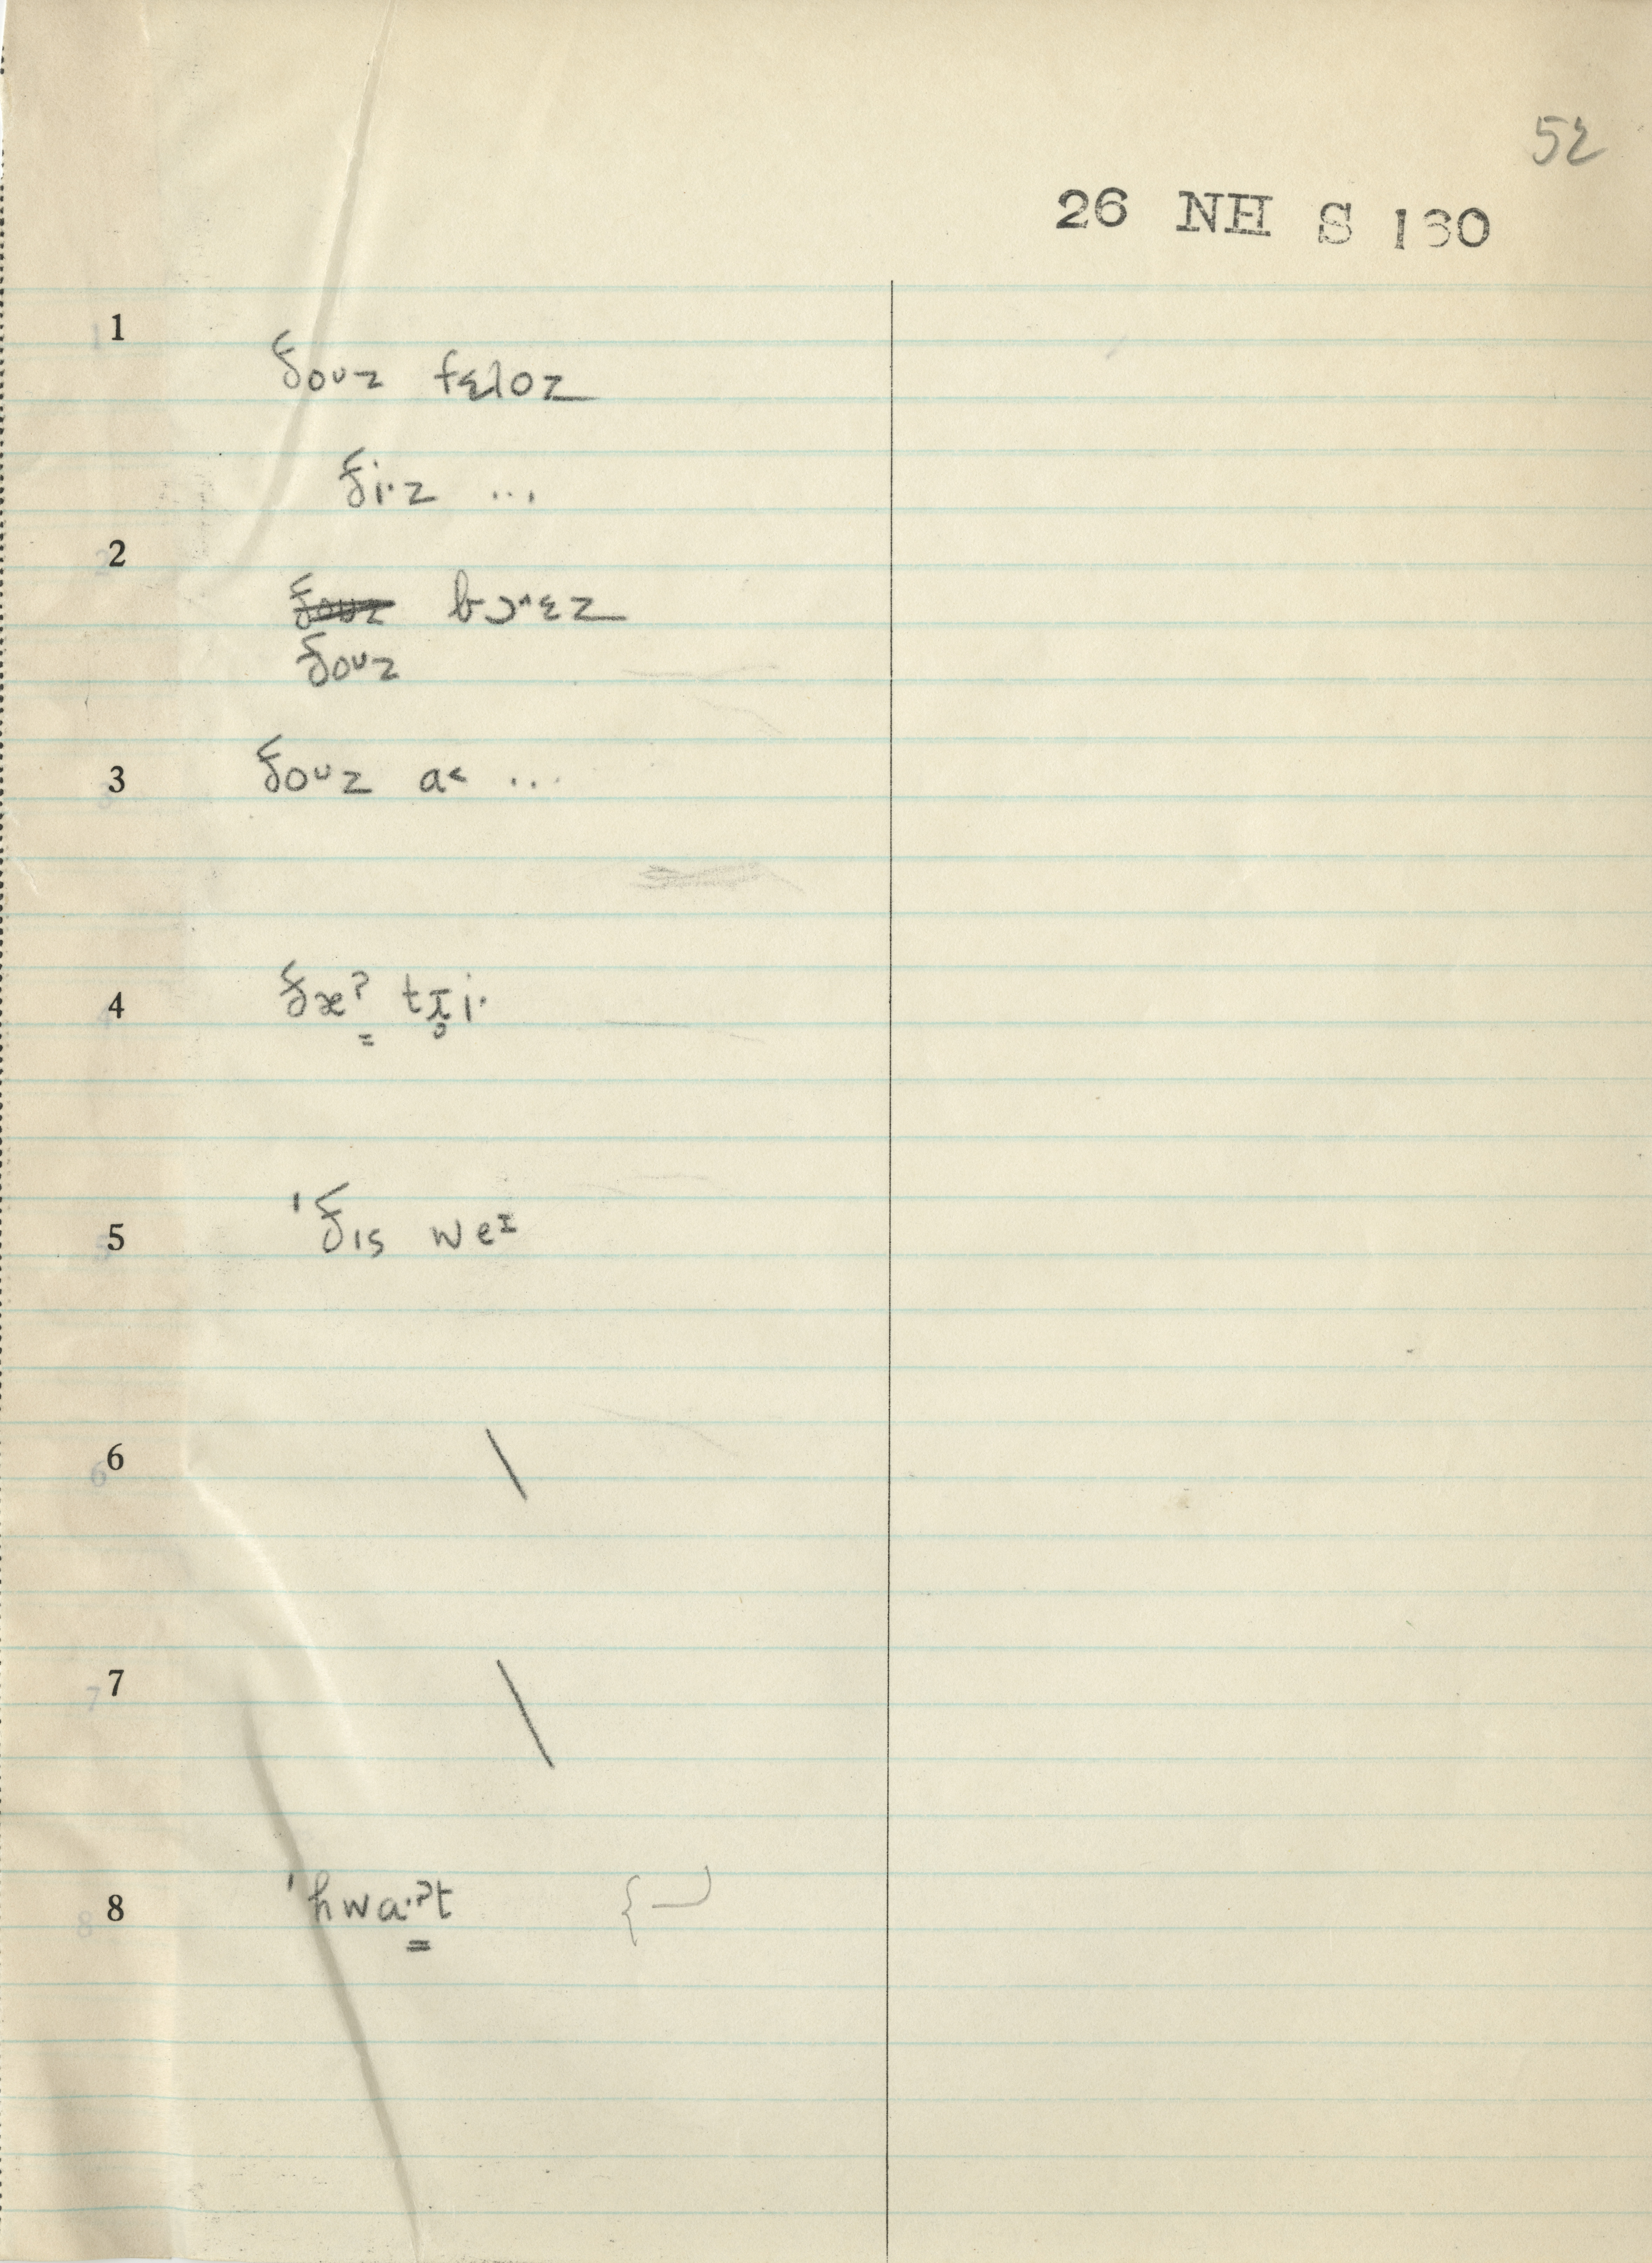 52
26 NH S 130
1
ðoᴜz fɛloz
ði·z ...
2
ðoᴜz bɔ^ɛz
ðoᴜz
3 ðoᴜz a< ...
4 ðæˀ tɹ̥i·
5 'ðɪs weɪ
6 \
7 \
8 'hwa·ˀt